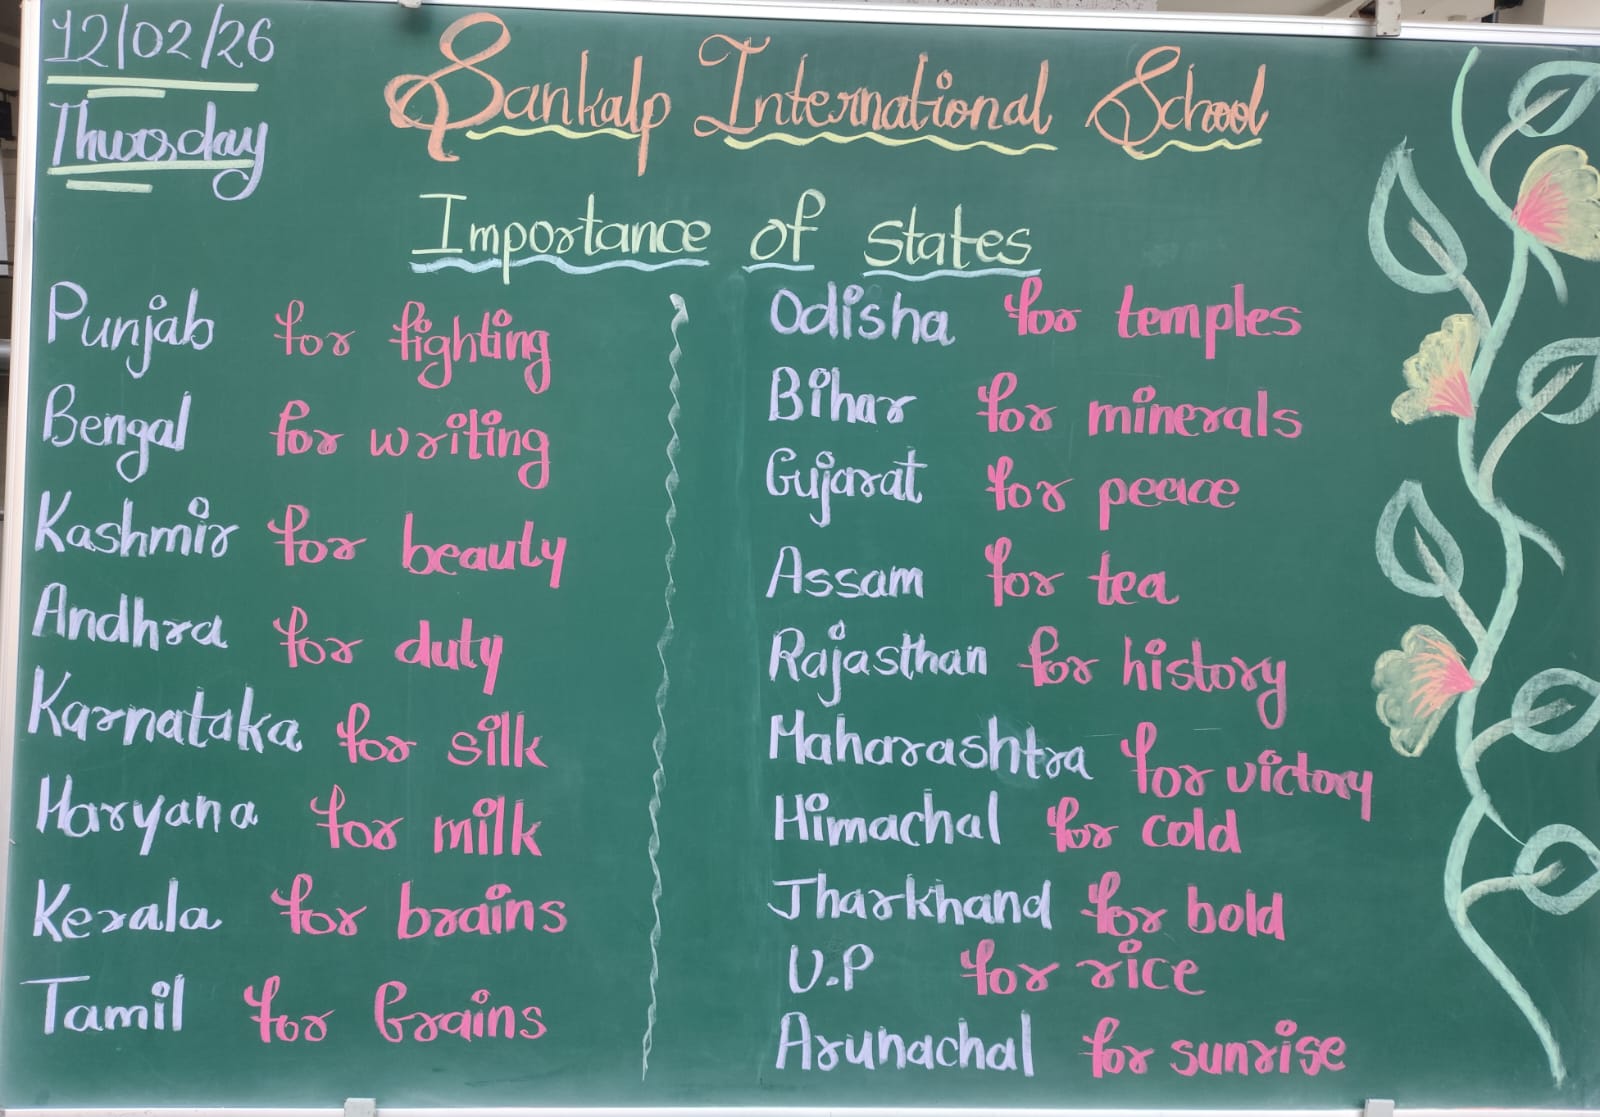 12/02/26
Thursday
Sankalp International School
Importance of states
Punjab for fighting
Bengal for writing
Kashmir for beauty
Andhra for duty
Karnataka for silk
Haryana for milk
Kerala for brains
Tamil for Grains
Odisha for temples
Bihar for minerals
Gujarat for peace
Assam for tea
Rajasthan for history
Maharashtra for victory
Himachal for cold
Jharkhand for bold
U.P for rice
Arunachal for sunrise